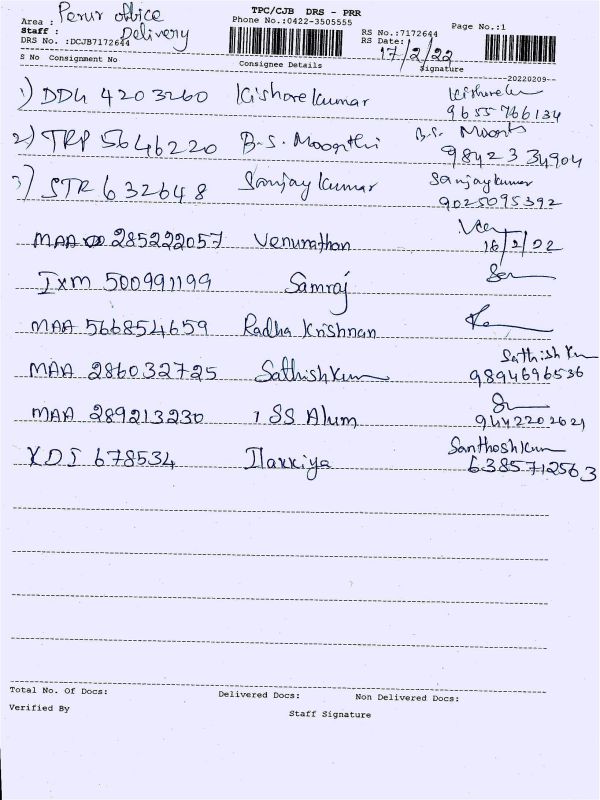 TPC/CJB DRS - PRR
Area : Perur office
Phone No.:0422-3505555
Page No.:1
Staff : Delivery
RS No.:7172644
DRS No. :DCJB7172644
RS Date: 17/2/22
S No Consignment No Consignee Details Signature
--20220209--
1) DDG 4203260 Kishorekumar
9655766134
2) TRP 5646220 B.S. Moorthi B.S. Moorthi
98423 34904
3) STR 632648 Sanjay kumar Sanjay kumar
9025095392
MAA 285222057 Venumathan 16/2/22
IXM 500991199 Samraj
MAA 566854659 Radha Krishnan
MAA 286032725 Sathishkum Sathish Km
9894696536
MAA 289213230 1 SS Alum
9442202621
KDI 678534 Ilakkiya Santhoshkum
6385712563
Total No. Of Docs: Delivered Docs: Non Delivered Docs:
Verified By Staff Signature